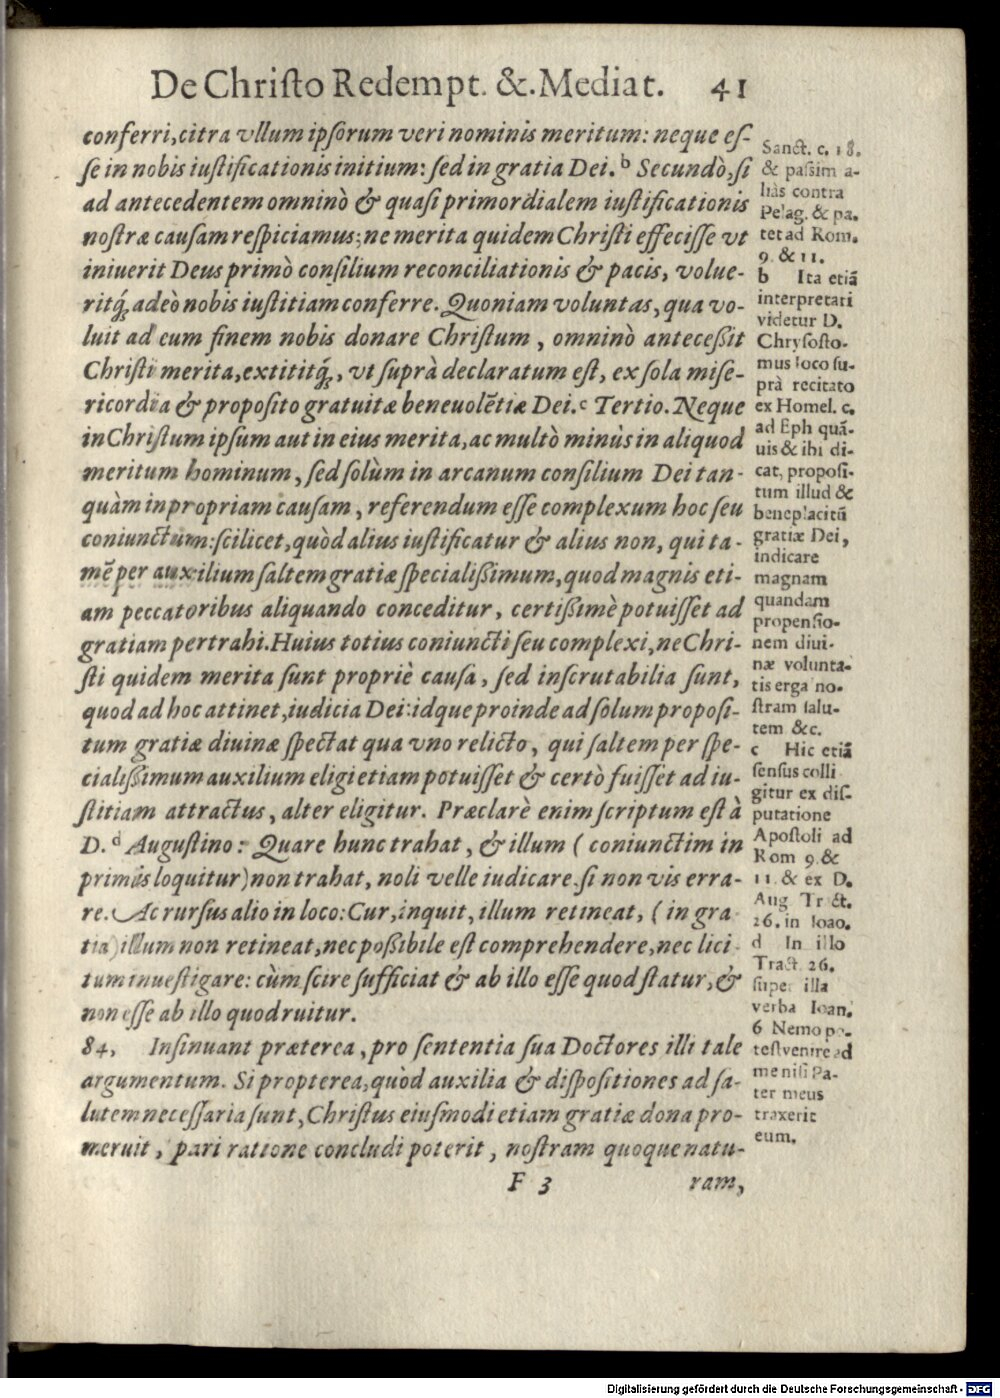 De Christo Redempt. &. Mediat. 41
conferri, citra vllum ipsorum veri nominis meritum: neque es-
se in nobis iustificationis initium: sed in gratia Dei. b Secundò, si
ad antecedentem omninò & quasi primordialem iustificationis
nostræ causam respiciamus; ne merita quidem Christi effecisse vt
iniuerit Deus primò consilium reconciliationis & pacis, volue-
ritq́ꝫ adeò nobis iustitiam conferre. Quoniam voluntas, qua vo-
luit ad eum finem nobis donare Christum, omninò anteceßit
Christi merita, extititq́ꝫ, vt suprà declaratum est, ex sola mise-
ricordia & proposito gratuitæ beneuolẽtiæ Dei. c Tertio. Neque
in Christum ipsum aut in eius merita, ac multò minùs in aliquod
meritum hominum, sed solùm in arcanum consilium Dei tan-
quàm in propriam causam, referendum esse complexum hoc seu
coniunctum: scilicet, quòd alius iustificatur & alius non, qui ta-
mẽ per auxilium saltem gratiæ specialißimum, quod magnis eti-
am peccatoribus aliquando conceditur, certißimè potuisset ad
gratiam pertrahi. Huius totius coniuncti seu complexi, ne Chri-
sti quidem merita sunt propriè causa, sed inscrutabilia sunt,
quod ad hoc attinet, iudicia Dei: idque proinde ad solum proposi-
tum gratiæ diuinæ spectat qua vno relicto, qui saltem per spe-
cialißimum auxilium eligi etiam potuisset & certò fuisset ad iu-
stitiam attractus, alter eligitur. Præclarè enim scriptum est à
D. d Augustino: Quare hunc trahat, & illum (coniunctim in
primis loquitur) non trahat, noli velle iudicare si non vis erra-
re. Ac rursus alio in loco: Cur, inquit, illum retineat, (in gra
tia) illum non retineat, nec poßibile est comprehendere, nec lici
tum inuestigare: cùm scire sufficiat & ab illo esse quod statur, &
non esse ab illo quod ruitur.
84, Insinuant præterea, pro sententia sua Doctores illi tale
argumentum. Si propterea, quòd auxilia & dispositiones ad sa-
lutem necessaria sunt, Christus eiusmodi etiam gratiæ dona pro-
meruit, pari ratione concludi poterit, nostram quoque natu-
F 3 ram,
Sanct. c. 18.
& passim a-
liàs contra
Pelag. & pa.
tet ad Rom.
9. & 11.
b Ita etiã
interpretari
videtur D.
Chrysosto-
mus loco su-
prà recitato
ex Homel. c.
ad Eph quã-
uis & ibi di-
cat, proposi-
tum illud &
beneplacitũ
gratiæ Dei,
indicare
magnam
quandam
propensio-
nem diui-
næ volunta-
tis erga no-
stram salu-
tem &c.
c Hic etiã
sensus colli
gitur ex dis-
putatione
Apostoli ad
Rom 9. &
11. & ex D.
Aug. Tract.
26. in Ioao.
d In illo
Tract. 26.
super illa
verba Ioan.
6 Nemo po-
test venire ad
me nisi Pa-
ter meus
traxerit
eum.
Digitalisierung gefördert durch die Deutsche Forschungsgemeinschaft - DFG